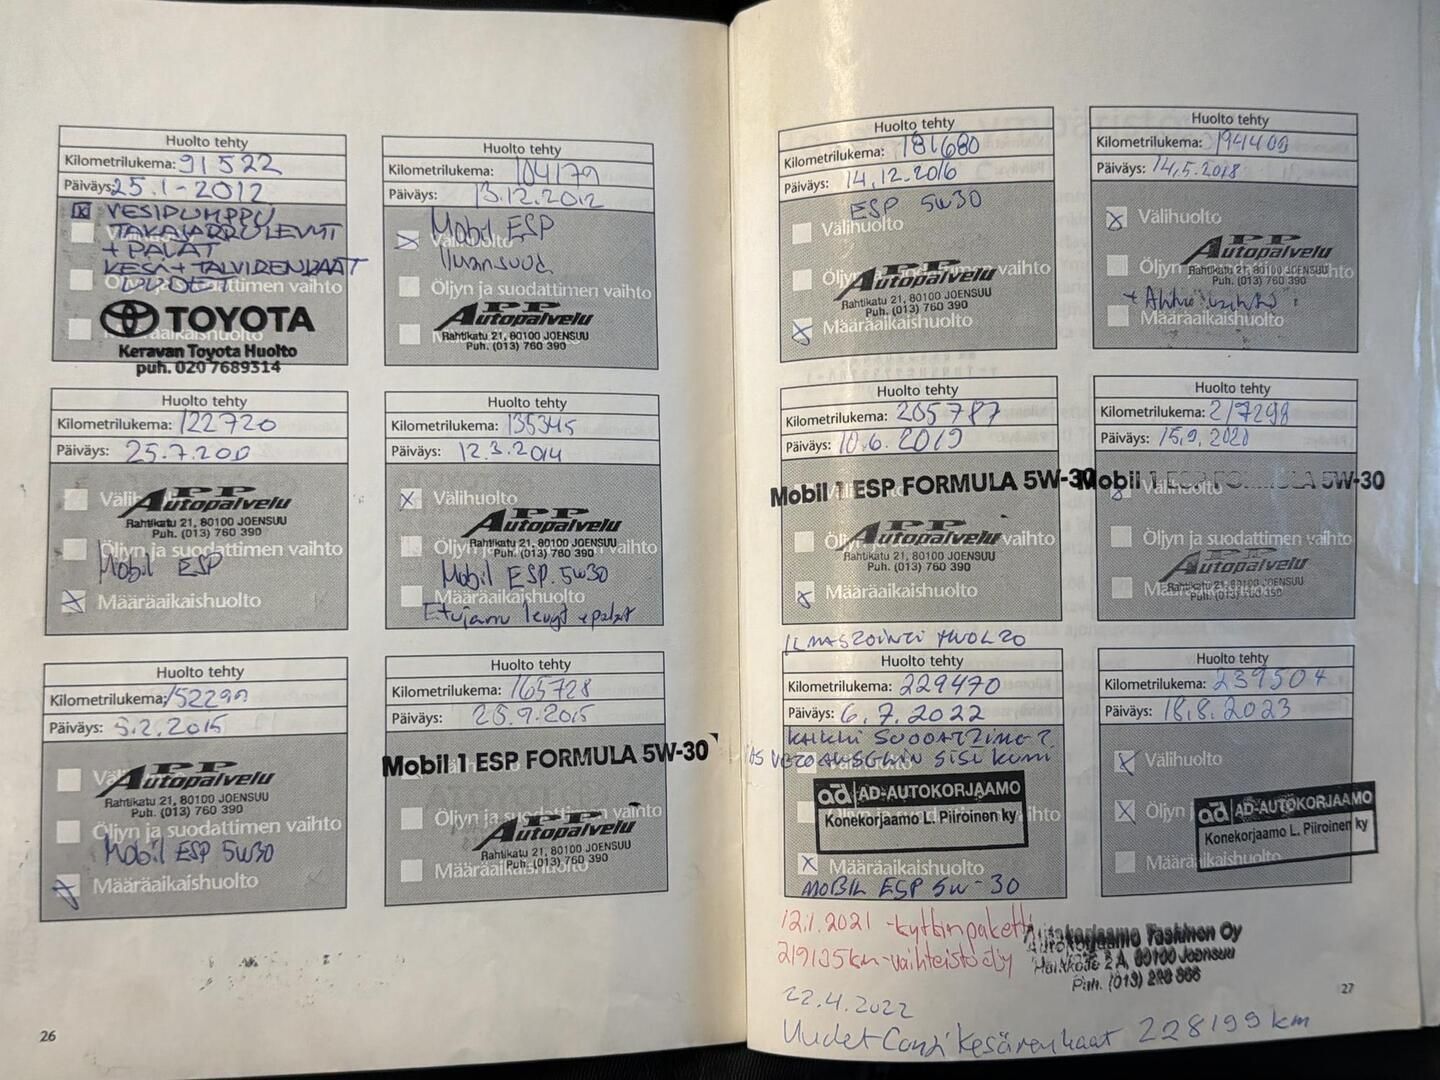 Huolto tehty
Kilometrilukema: 91522
Päiväys: 25.1-2012
VESIPUMPPU
TAKAJARRULEVYT
+ PALAT
KESÄ + TALVIRENKAAT
UUDET
Öljyn ja suodattimen vaihto
TOYOTA
Keravan Toyota Huolto
puh. 020 7689314
Huolto tehty
Kilometrilukema: 104179
Päiväys: 13.12.2012
Mobil ESP
Välihuolto
Ilmansuod
Öljyn ja suodattimen vaihto
PP Autopalvelu
Rahtikatu 21, 80100 JOENSUU
Puh. (013) 760 390
Huolto tehty
Kilometrilukema: 122720
Päiväys: 25.7.200
PP Autopalvelu
Rahtikatu 21, 80100 JOENSUU
Puh. (013) 760 390
Öljyn ja suodattimen vaihto
Mobil ESP
Määräaikaishuolto
Huolto tehty
Kilometrilukema: 135345
Päiväys: 12.3.2014
Välihuolto
PP Autopalvelu
Rahtikatu 21, 80100 JOENSUU
Puh. (013) 760 390
Öljyn ja suodattimen vaihto
Mobil ESP. 5w30
Määräaikaishuolto
Etujarru levyt + palat
Huolto tehty
Kilometrilukema: 152299
Päiväys: 5.2.2015
PP Autopalvelu
Rahtikatu 21, 80100 JOENSUU
Puh. (013) 760 390
Öljyn ja suodattimen vaihto
Mobil ESP 5w30
Määräaikaishuolto
Huolto tehty
Kilometrilukema: 165728
Päiväys: 25.9.2015
Mobil 1 ESP FORMULA 5W-30
Öljyn ja suodattimen vaihto
PP Autopalvelu
Rahtikatu 21, 80100 JOENSUU
Puh. (013) 760 390
Määräaikaishuolto
26
Huolto tehty
Kilometrilukema: 181680
Päiväys: 14.12.2016
ESP 5w30
Välihuolto
PP Autopalvelu
Rahtikatu 21, 80100 JOENSUU
Puh. (013) 760 390
Määräaikaishuolto
Huolto tehty
Kilometrilukema: 194400
Päiväys: 14.5.2018
Välihuolto
PP Autopalvelu
Rahtikatu 21, 80100 JOENSUU
Puh. (013) 760 390
+ Akku vaihto
Määräaikaishuolto
Huolto tehty
Kilometrilukema: 205787
Päiväys: 10.6.2019
Mobil 1 ESP FORMULA 5W-30
PP Autopalvelu
Rahtikatu 21, 80100 JOENSUU
Puh. (013) 760 390
Määräaikaishuolto
Huolto tehty
Kilometrilukema: 217298
Päiväys: 15.9.2020
Mobil 1 ESP FORMULA 5W-30
Öljyn ja suodattimen vaihto
PP Autopalvelu
Rahtikatu 21, 80100 JOENSUU
Puh. (013) 760 390
ILMASTOINTI HUOLTO
Huolto tehty
Kilometrilukema: 229470
Päiväys: 6.7.2022
KAIKKI SUODATTIMET
SISÄ KUMI
ad AD-AUTOKORJAAMO
Konekorjaamo L. Piiroinen ky
MOBIL ESP 5W-30
Huolto tehty
Kilometrilukema: 239504
Päiväys: 18.8.2023
Välihuolto
ad AD-AUTOKORJAAMO
Konekorjaamo L. Piiroinen ky
Määräaikaishuolto
12.1.2021 -kytkinpaketti
219135km -vaihteistoöljy
Autokorjaamo Taskinen Oy
80100 Joensuu
22.4.2022
Uudet Conti kesärenkaat 228199 km
27